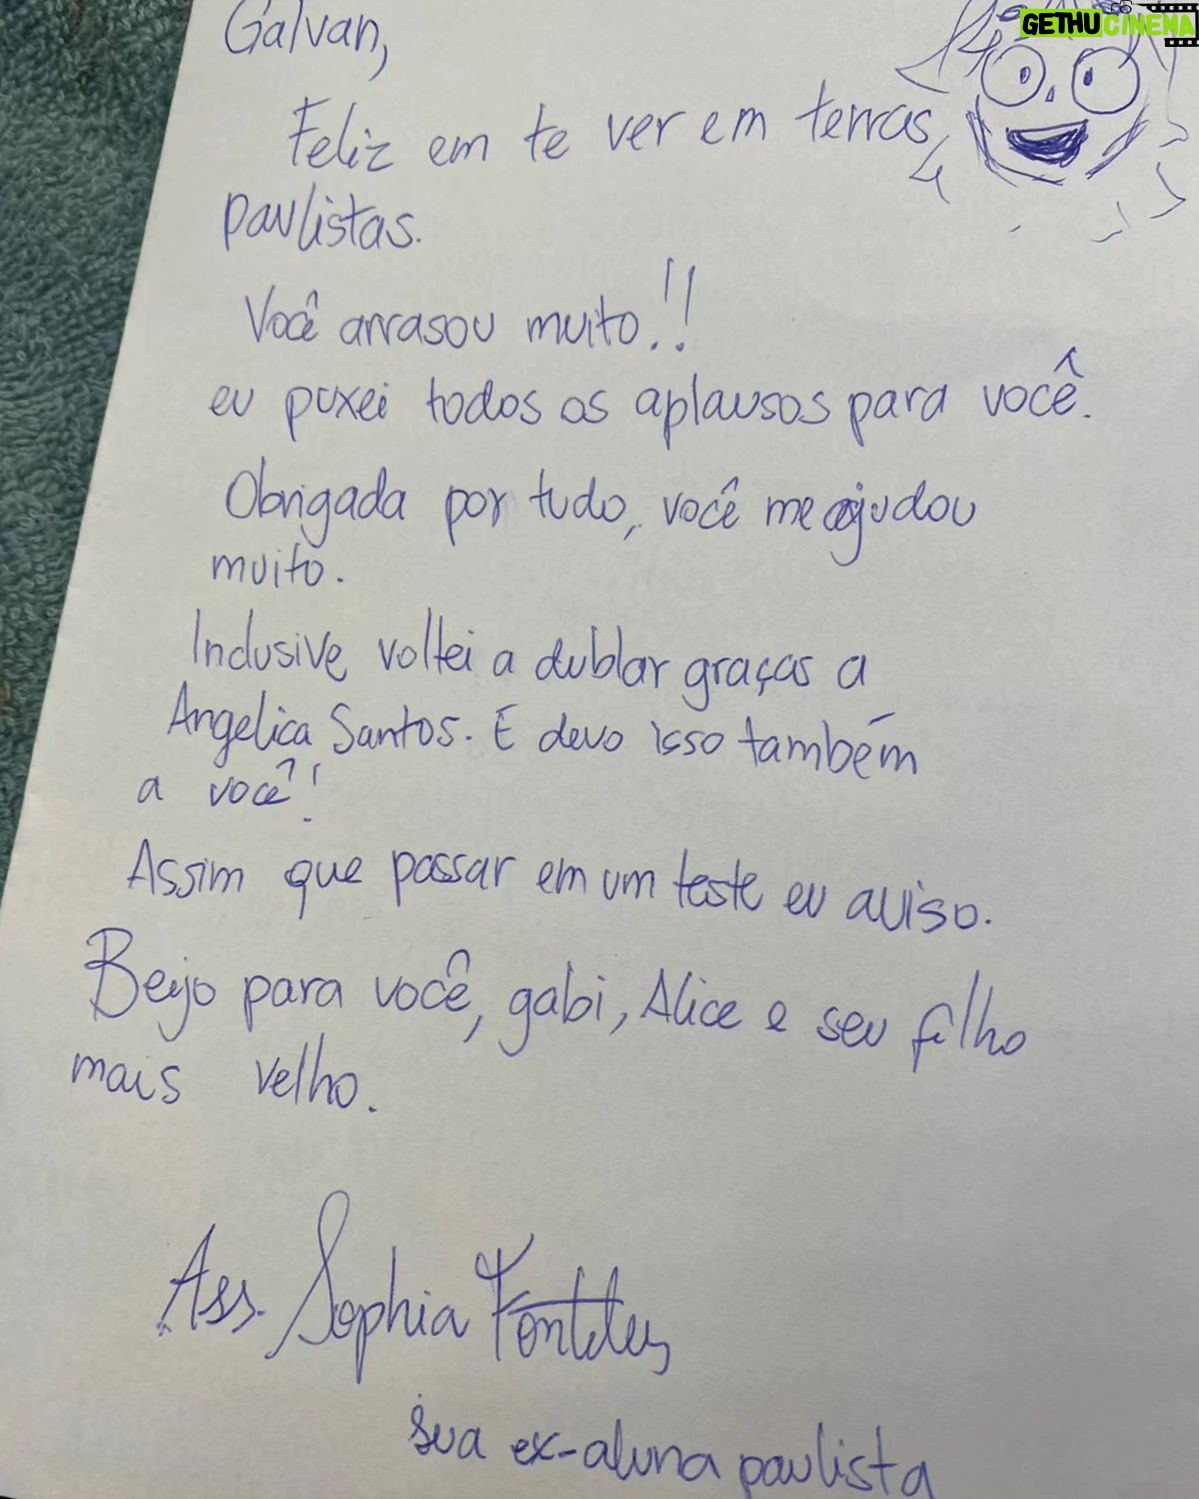 GETHUCINEMA
Galvan,
Feliz em te ver em terras
paulistas.
Você arrasou muito!!
eu puxei todos os aplausos para você.
Obrigada por tudo, você me ajudou
muito.
Inclusive voltei a dublar graças a
Angelica Santos. E devo isso também
a você!
Assim que passar em um teste eu aviso.
Beijo para você, gabi, Alice e seu filho
mais velho.
Ass. Sophia
sua ex-aluna paulista